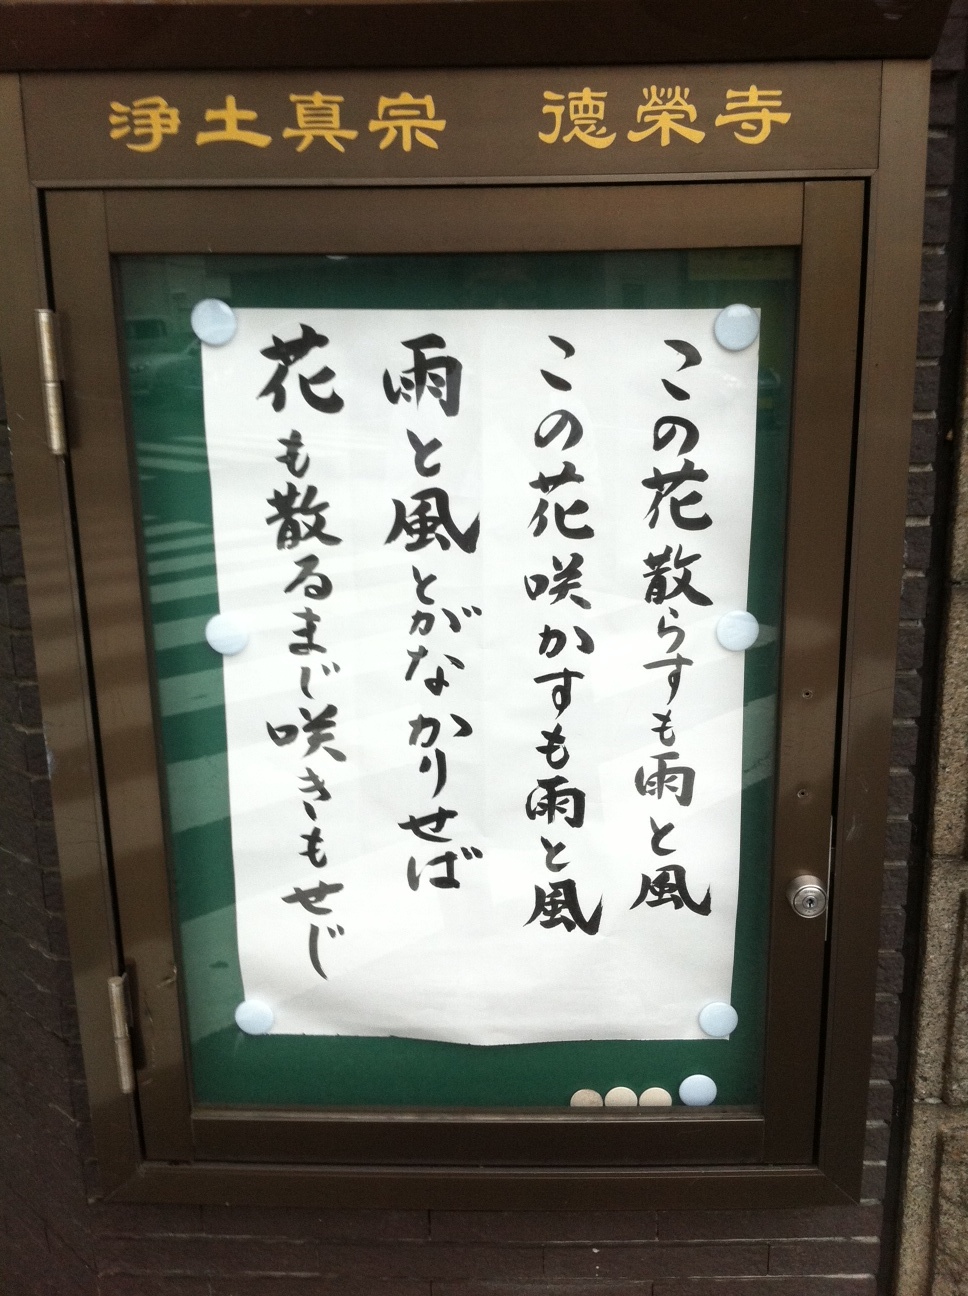 浄土真宗 徳榮寺
この花散らすも雨と風
この花咲かすも雨と風
雨と風とがなかりせば
花も散るまじ咲きもせじ